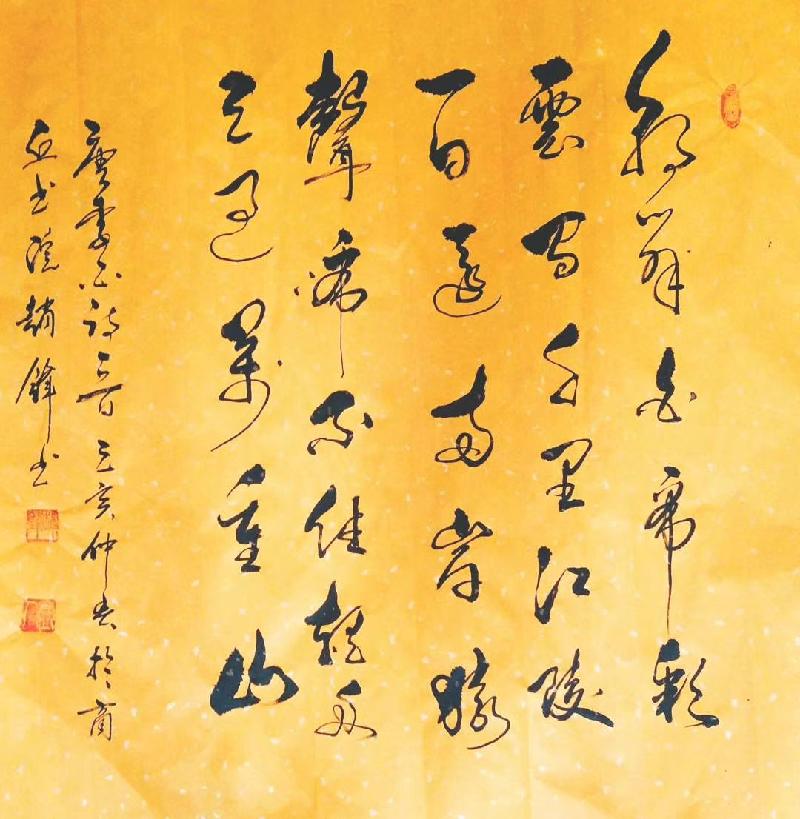 朝辭白帝彩
雲間千里江陵
一日還兩岸猿
聲啼不住輕舟
已過萬重山
唐李白詩一首己亥仲春於商
丘書院趙鋒書